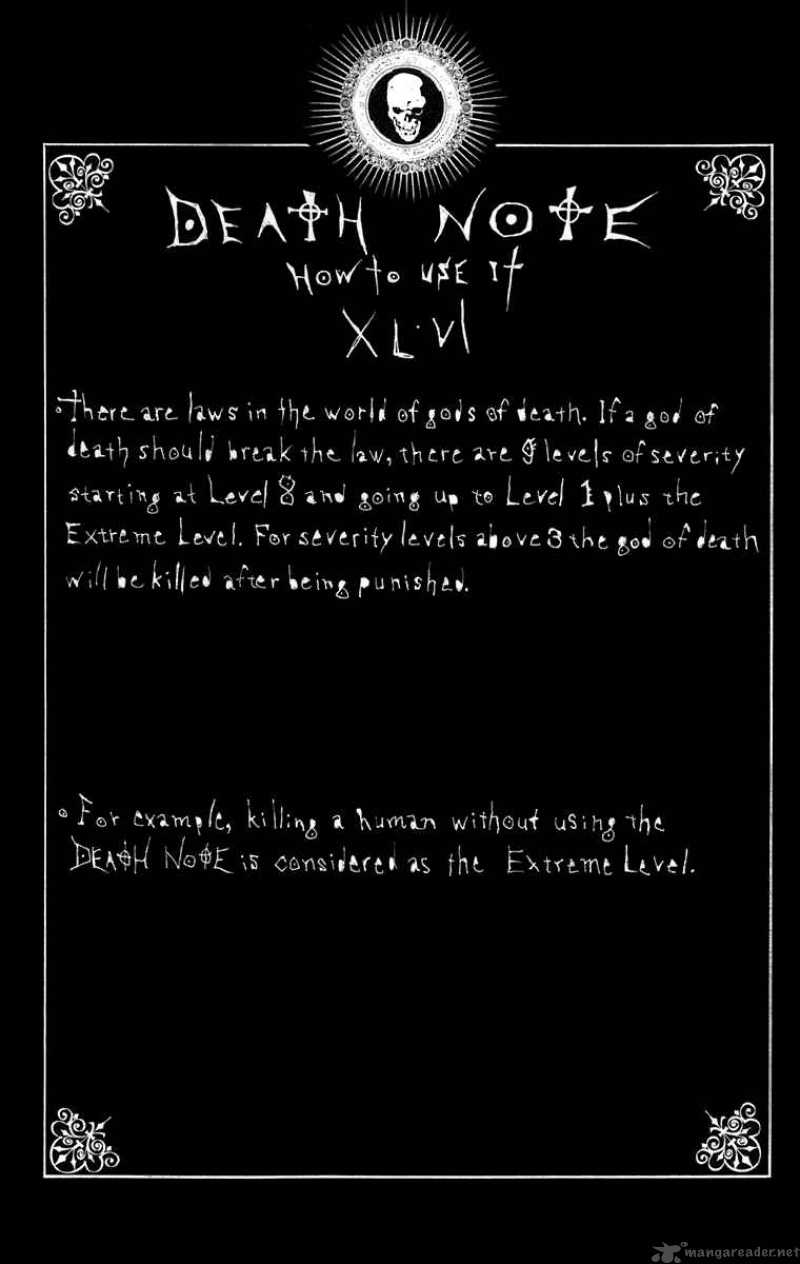 DEATH NOTE
HOW to USE It
XL·VI
• There are laws in the world of gods of death. If a god of
death should break the law, there are 9 levels of severity
starting at Level 8 and going up to Level 1 plus the
Extreme Level. For severity levels above 3 the god of death
will be killed after being punished.
• For example, killing a human without using the
DEATH NOTE is considered as the Extreme Level.
mangareader.net